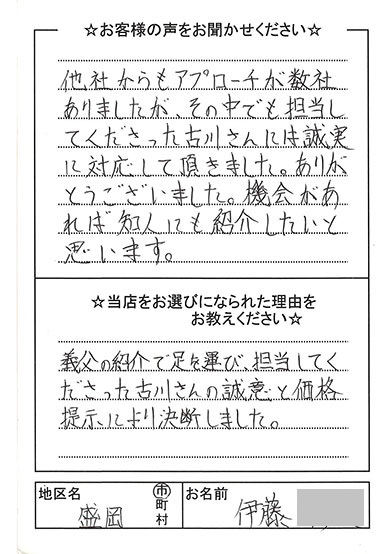 ☆お客様の声をお聞かせください☆
他社からもアプローチが数社
ありましたが、その中でも担当し
てくださった古川さんには誠実
に対応して頂きました。ありが
とうございました。機会があ
れば知人にも紹介したいと
思います。
☆当店をお選びになられた理由を
お教えください☆
義父の紹介で足を運び、担当してく
ださった古川さんの誠意と価格
提示により決断しました。
地区名 盛岡 市町村 お名前 伊藤